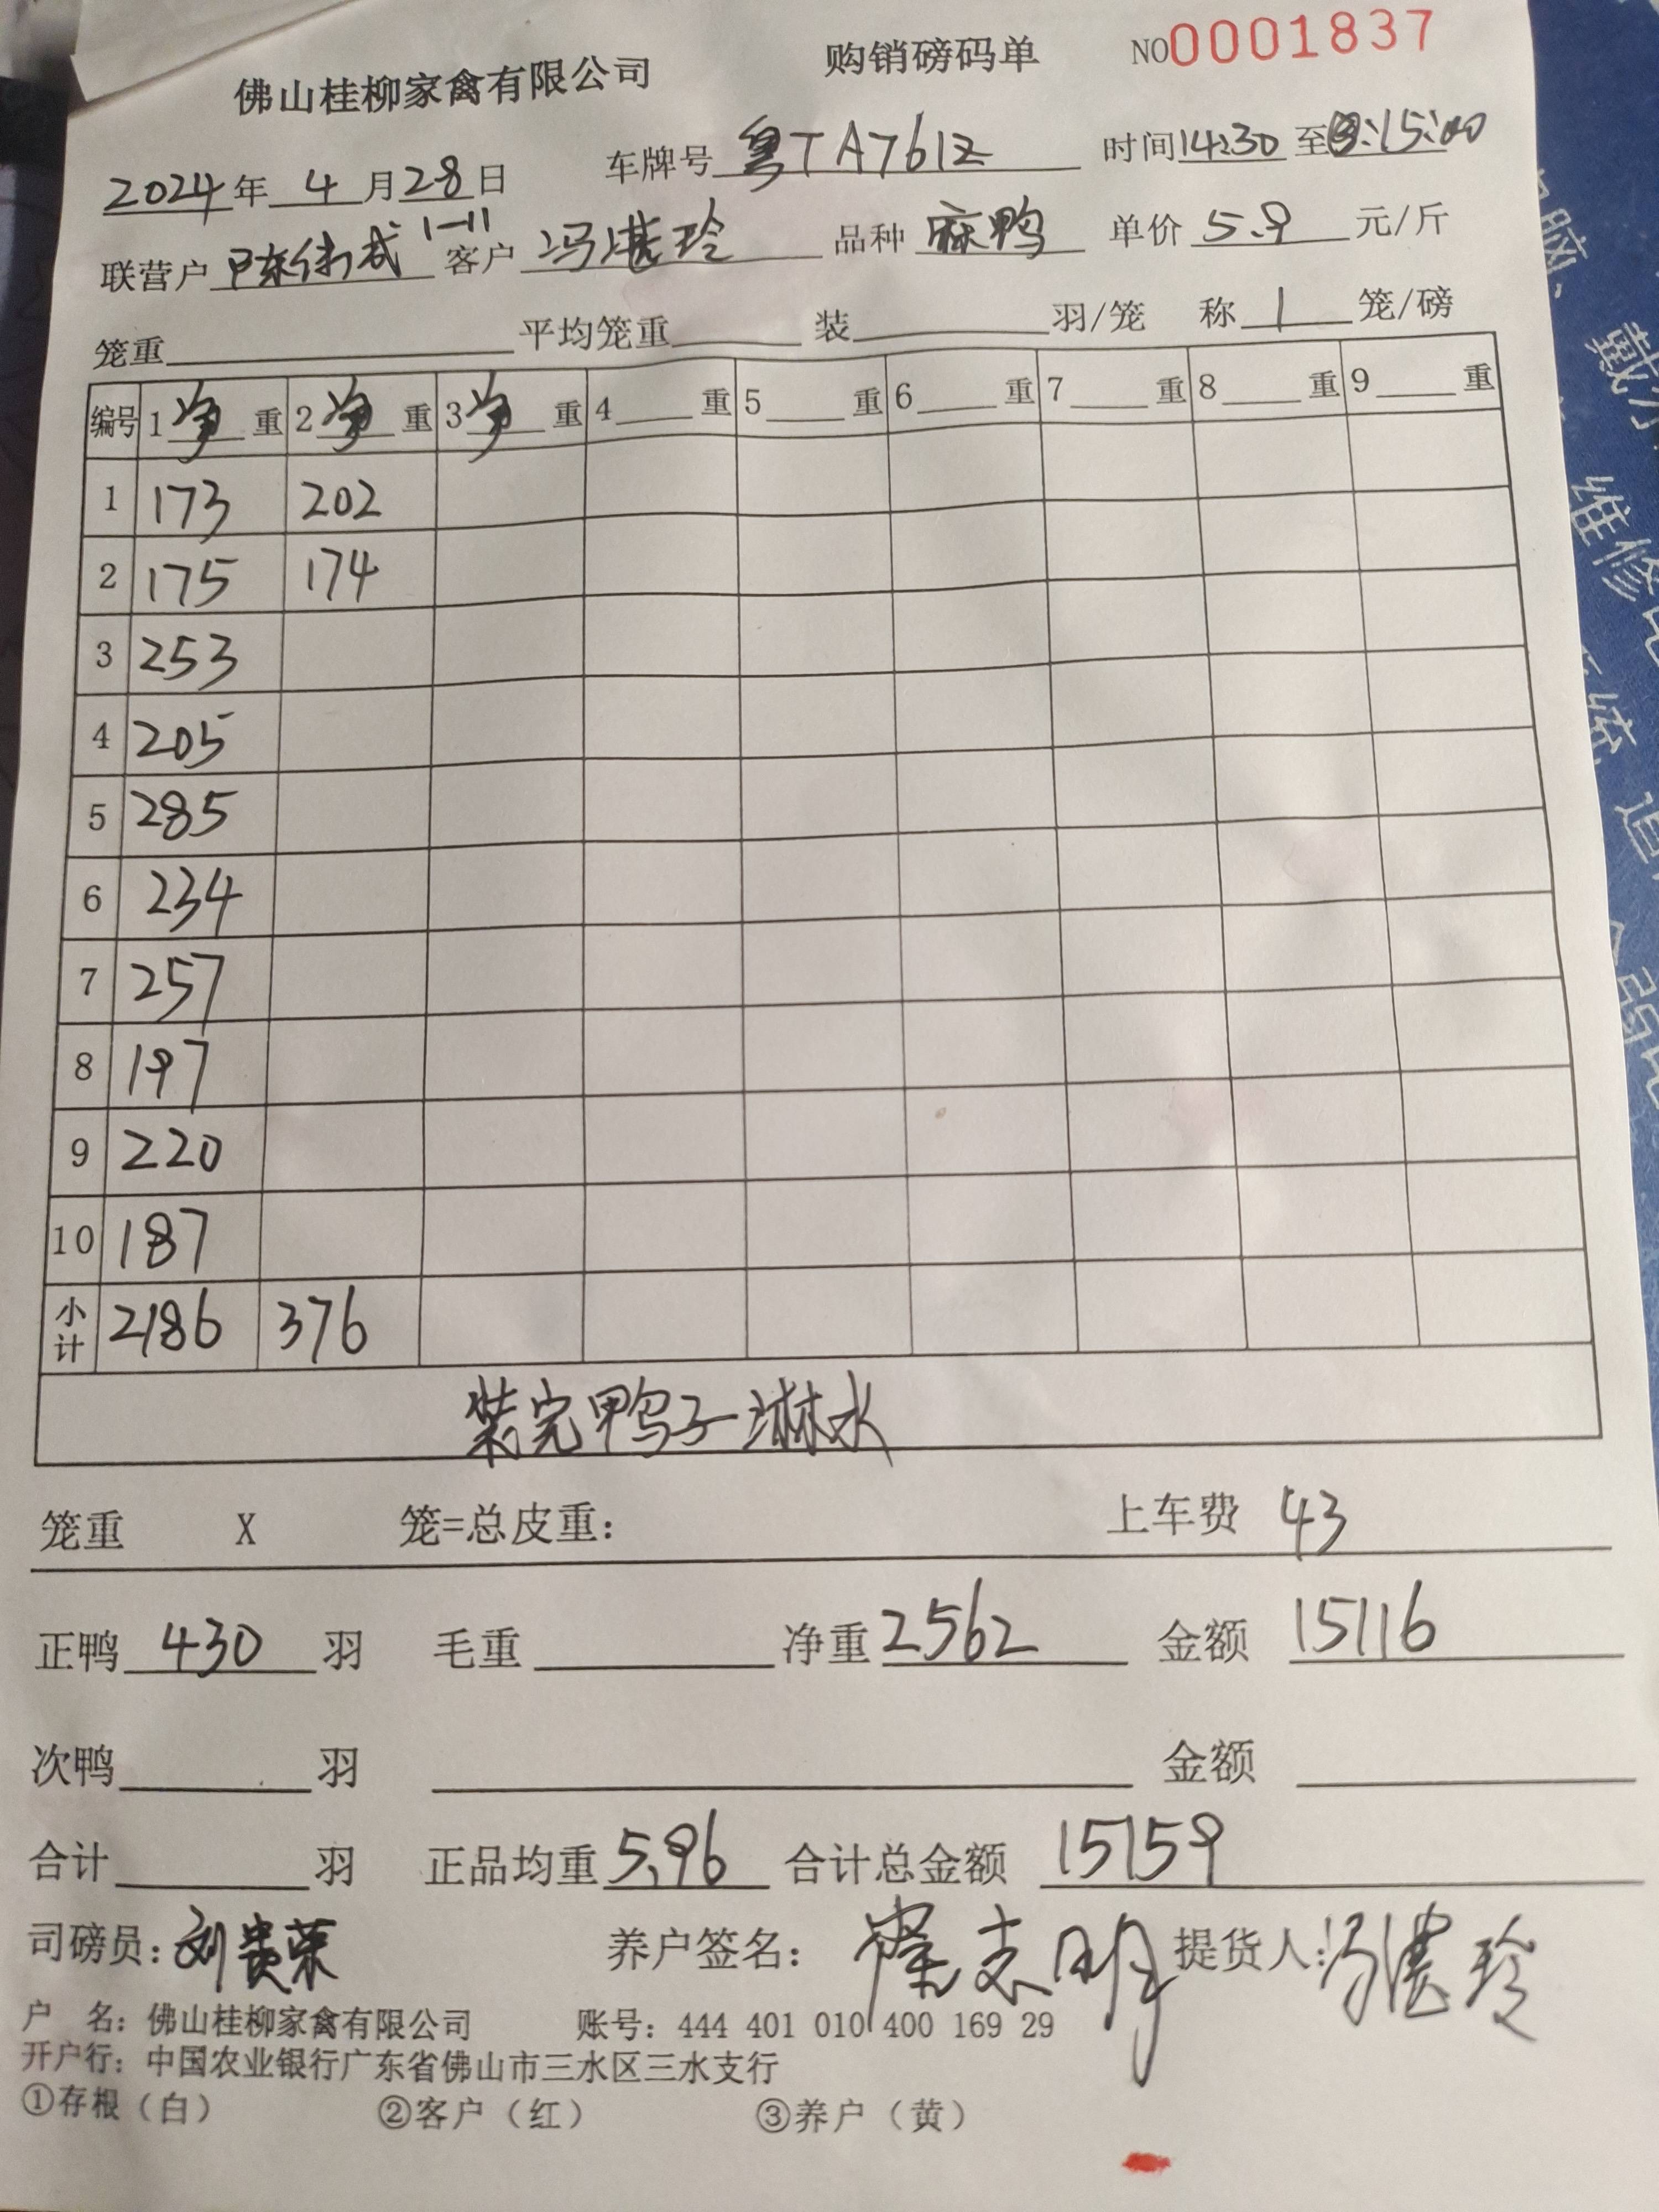 佛山桂柳家禽有限公司 购销磅码单 NO0001837
2024年 4月28日 车牌号 粤TA761Z 时间14:30 至 15:00
联营户 陈 武 1-11 客户 冯湛玲 品种 麻鸭 单价 5.9 元/斤
笼重 平均笼重 装 羽/笼 称 1 笼/磅
编号 1 净 重 2 净 重 3 净 重 4 重 5 重 6 重 7 重 8 重 9 重
1 173 202
2 175 174
3 253
4 205
5 285
6 234
7 257
8 197
9 220
10 187
小计 2186 376
装完鸭子淋水
笼重 X 笼=总皮重: 上车费 43
正鸭 430 羽 毛重 净重 2562 金额 15116
次鸭 羽 金额
合计 羽 正品均重 5.96 合计总金额 15159
司磅员: 刘贵荣 养户签名: 志明 提货人: 冯湛玲
户 名: 佛山桂柳家禽有限公司 账号: 444 401 010 400 169 29
开户行: 中国农业银行广东省佛山市三水区三水支行
①存根（白） ②客户（红） ③养户（黄）
戴尔
维修
系统